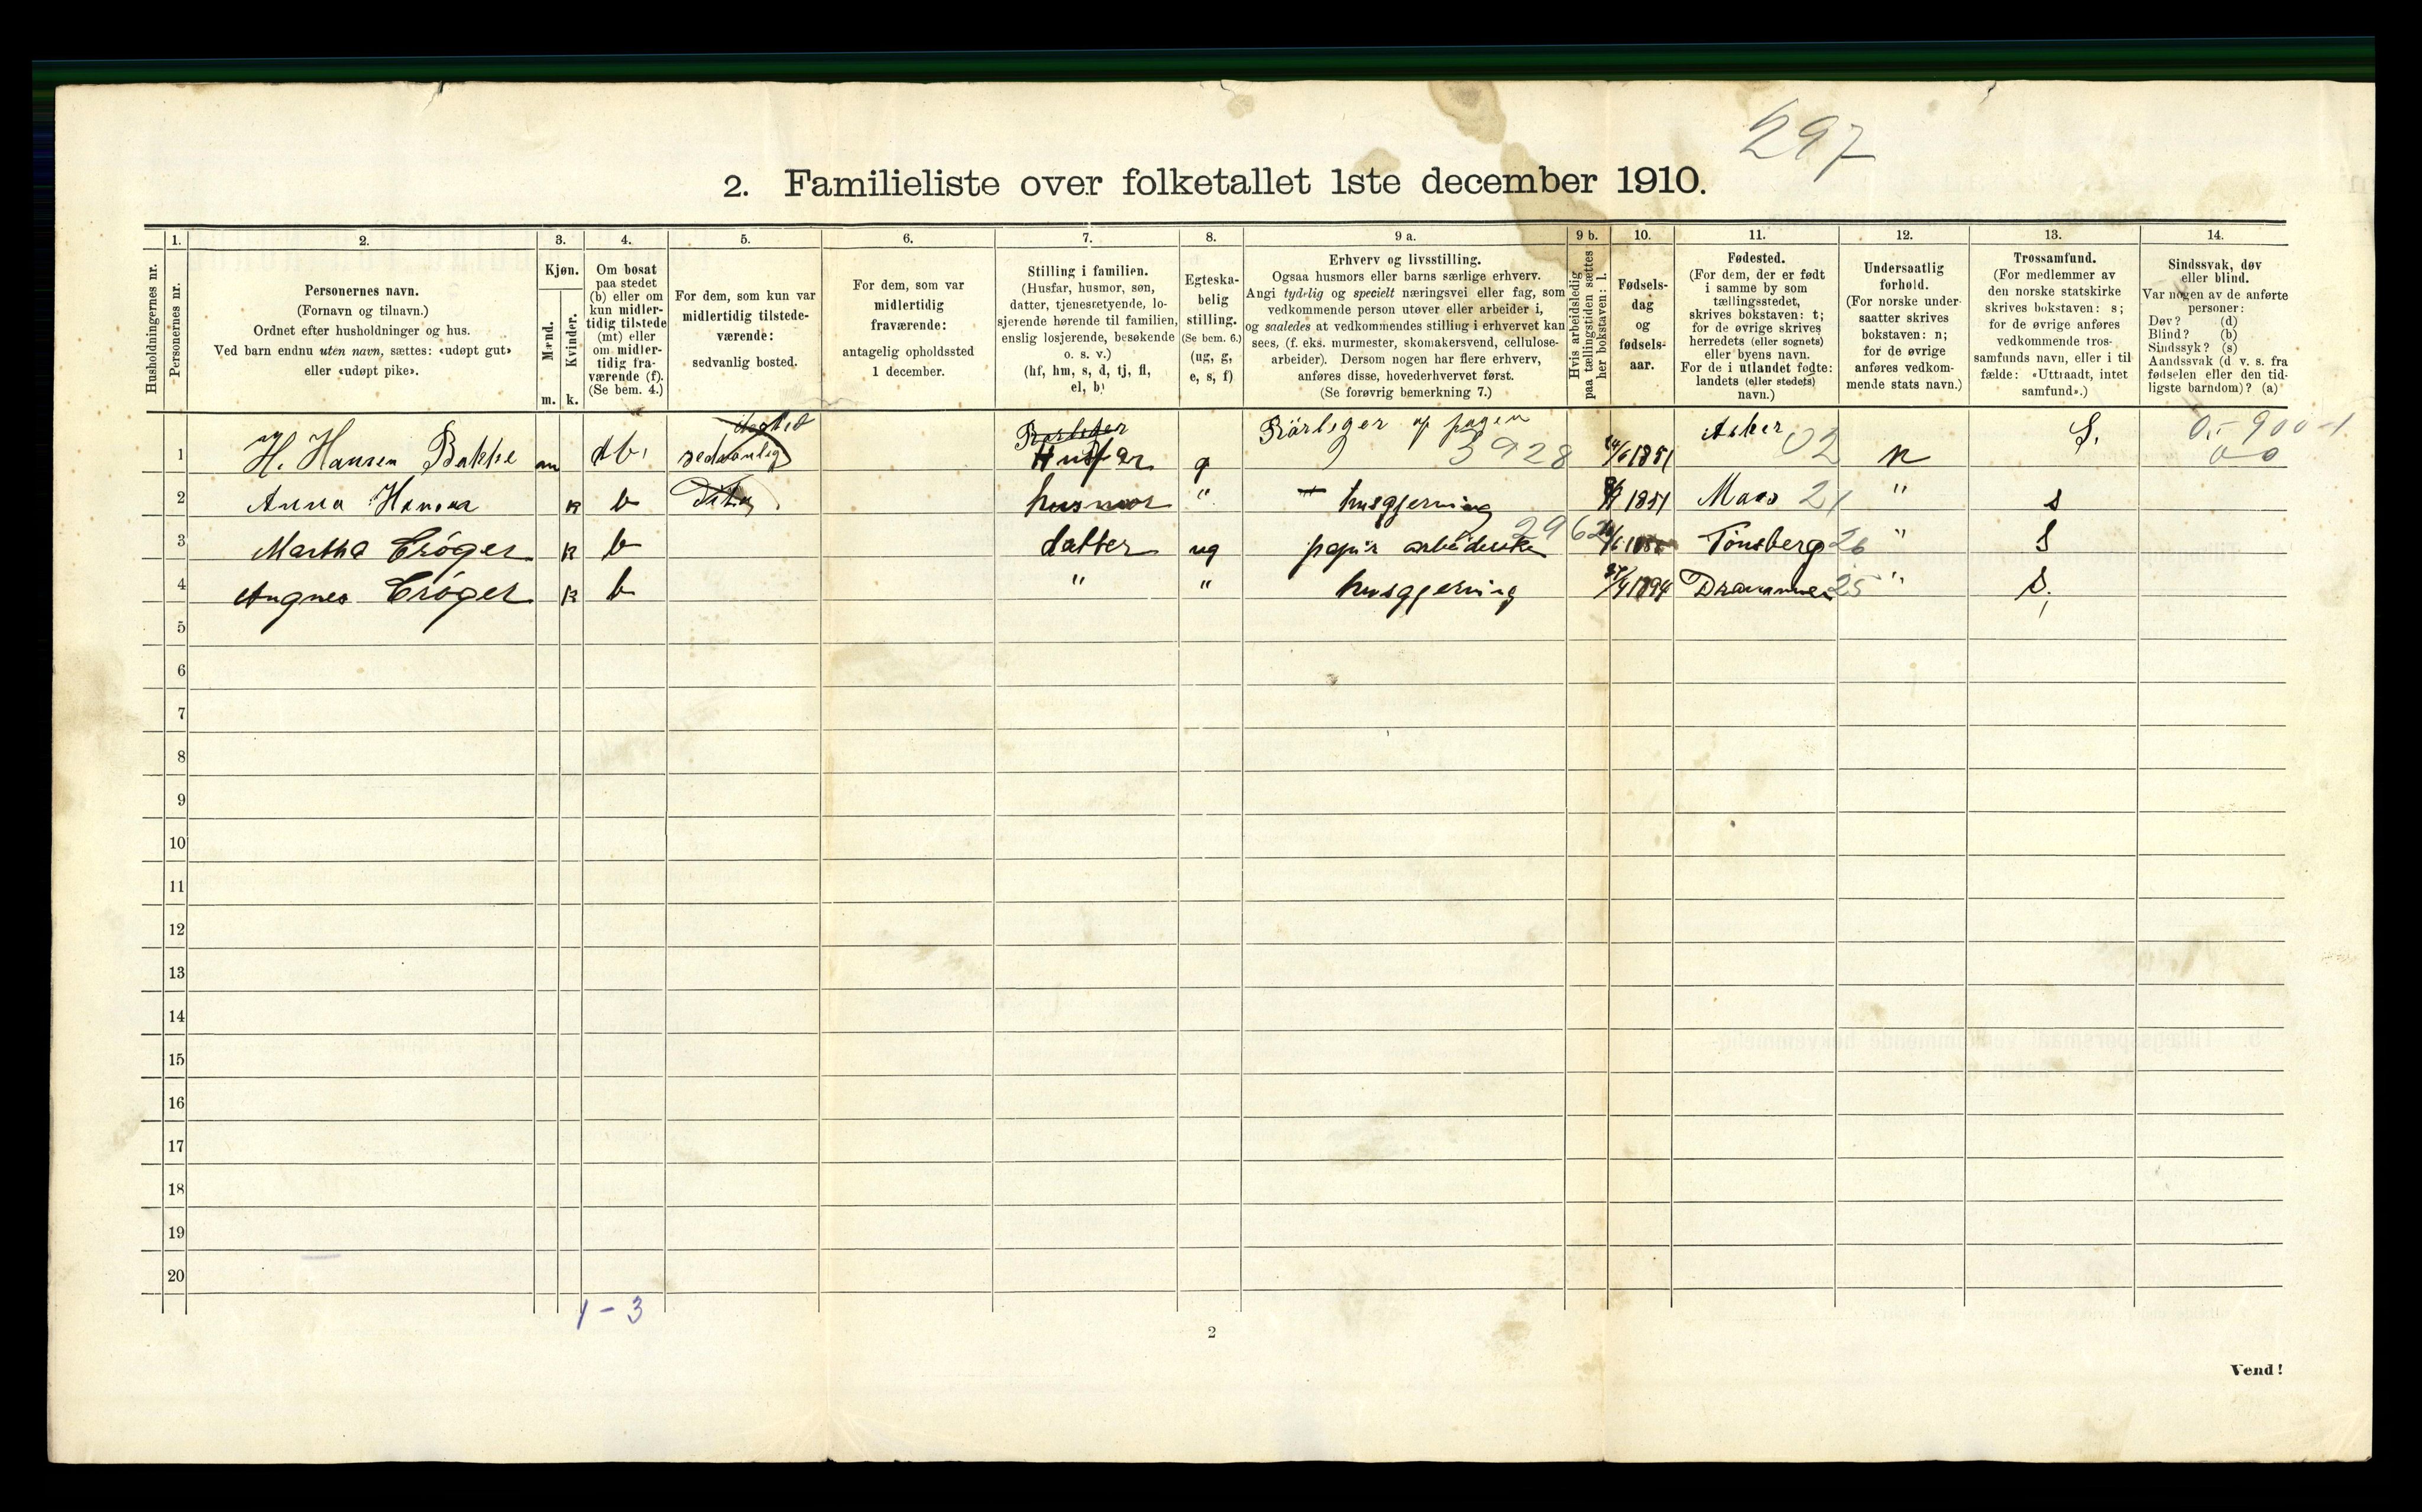 297
2. Familieliste over folketallet 1ste december 1910.
Husholdningernes nr.
1.
Personernes nr.
2.
Personernes navn.
(Fornavn og tilnavn.)
Ordnet efter husholdninger og hus.
Ved barn endnu uten navn, sættes: «udøpt gut»
eller «udøpt pike».
3.
Kjøn.
Mænd.
Kvinder.
m. k.
4.
Om bosat
paa stedet
(b) eller om
kun midler-
tidig tilstede
(mt) eller
om midler-
tidig fra-
værende (f).
(Se bem. 4.)
5.
For dem, som kun var
midlertidig tilstede-
værende:
sedvanlig bosted.
6.
For dem, som var
midlertidig
fraværende:
antagelig opholdssted
1 december.
7.
Stilling i familien.
(Husfar, husmor, søn,
datter, tjenestetyende, lo-
sjerende hørende til familien,
enslig losjerende, besøkende
o. s. v.)
(hf, hm, s, d, tj, fl,
el, b)
8.
Egteska-
belig
stilling.
(Se bem. 6.)
(ug, g,
e, s, f)
9 a.
Erhverv og livsstilling.
Ogsaa husmors eller barns særlige erhverv.
Angi tydelig og specielt næringsvei eller fag, som
vedkommende person utøver eller arbeider i,
og saaledes at vedkommendes stilling i erhvervet kan
sees, (f. eks. murmester, skomakersvend, cellulose-
arbeider). Dersom nogen har flere erhverv,
anføres disse, hovederhvervet først.
(Se forøvrig bemerkning 7.)
9 b.
Hvis arbeidsledig
paa tællingstiden sættes
her bokstaven: l.
10.
Fødsels-
dag
og
fødsels-
aar.
11.
Fødested.
(For dem, der er født
i samme by som
tællingsstedet,
skrives bokstaven: t;
for de øvrige skrives
herredets (eller sognets)
eller byens navn.
For de i utlandet fødte:
landets (eller stedets)
navn.)
12.
Undersaatlig
forhold.
(For norske under-
saatter skrives
bokstaven: n;
for de øvrige
anføres vedkom-
mende stats navn.)
13.
Trossamfund.
(For medlemmer av
den norske statskirke
skrives bokstaven: s;
for de øvrige anføres
vedkommende tros-
samfunds navn, eller i til
fælde: «Uttraadt, intet
samfund».)
14.
Sindssvak, døv
eller blind.
Var nogen av de anførte
personer:
Døv? (d)
Blind? (b)
Sindssyk? (s)
Aandssvak (d v. s. fra
fødselen eller den tid-
ligste barndom)? (a)
1 H. Hansen Bakke m b. sedvanlig Husfar g 3928 1851 Asker 02 n S. 0.- 900-1
2 Anna Hansen k b Dito husmor " husgjerning 1851 Maas 21 " s
3 Martha Crøger k b datter ug papir arbeiderske 2962 Tønsberg 26 " S
4 Angnes Crøger k b " " husgjerning 27/4 1894 Drammen 25 " S.
5
6
7
8
9
10
11
12
13
14
15
16
17
18
19
20
1-3
2
Vend!